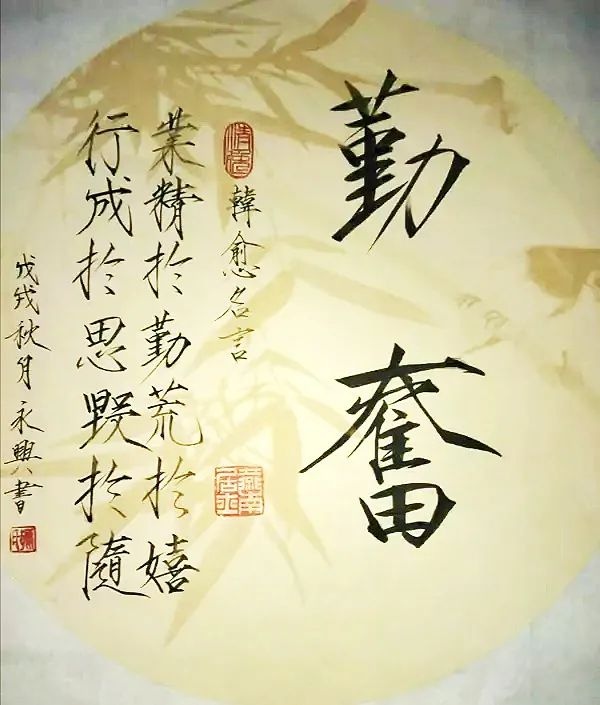 勤奮
韓愈名言
業精於勤荒於嬉
行成於思毀於隨
戊戌秋月永興書
燕南居士